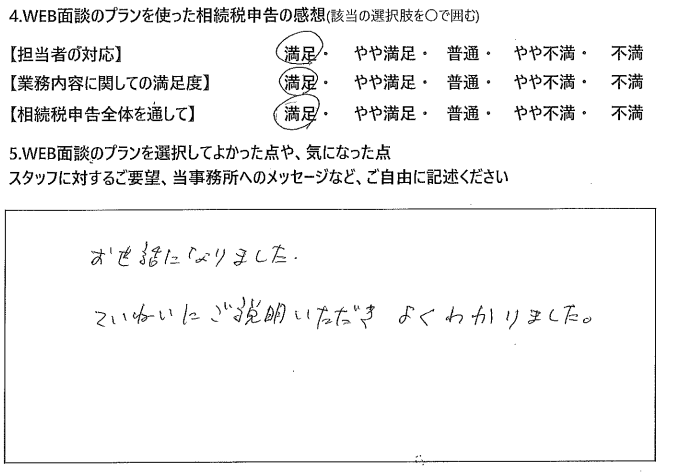 4.WEB面談のプランを使った相続税申告の感想(該当の選択肢を〇で囲む)
【担当者の対応】 満足・ やや満足・ 普通・ やや不満・ 不満
【業務内容に関しての満足度】 満足・ やや満足・ 普通・ やや不満・ 不満
【相続税申告全体を通して】 満足・ やや満足・ 普通・ やや不満・ 不満
5.WEB面談のプランを選択してよかった点や、気になった点
スタッフに対するご要望、当事務所へのメッセージなど、ご自由に記述ください
お世話になりました.
ていねいにご説明いただき よくわかりました。